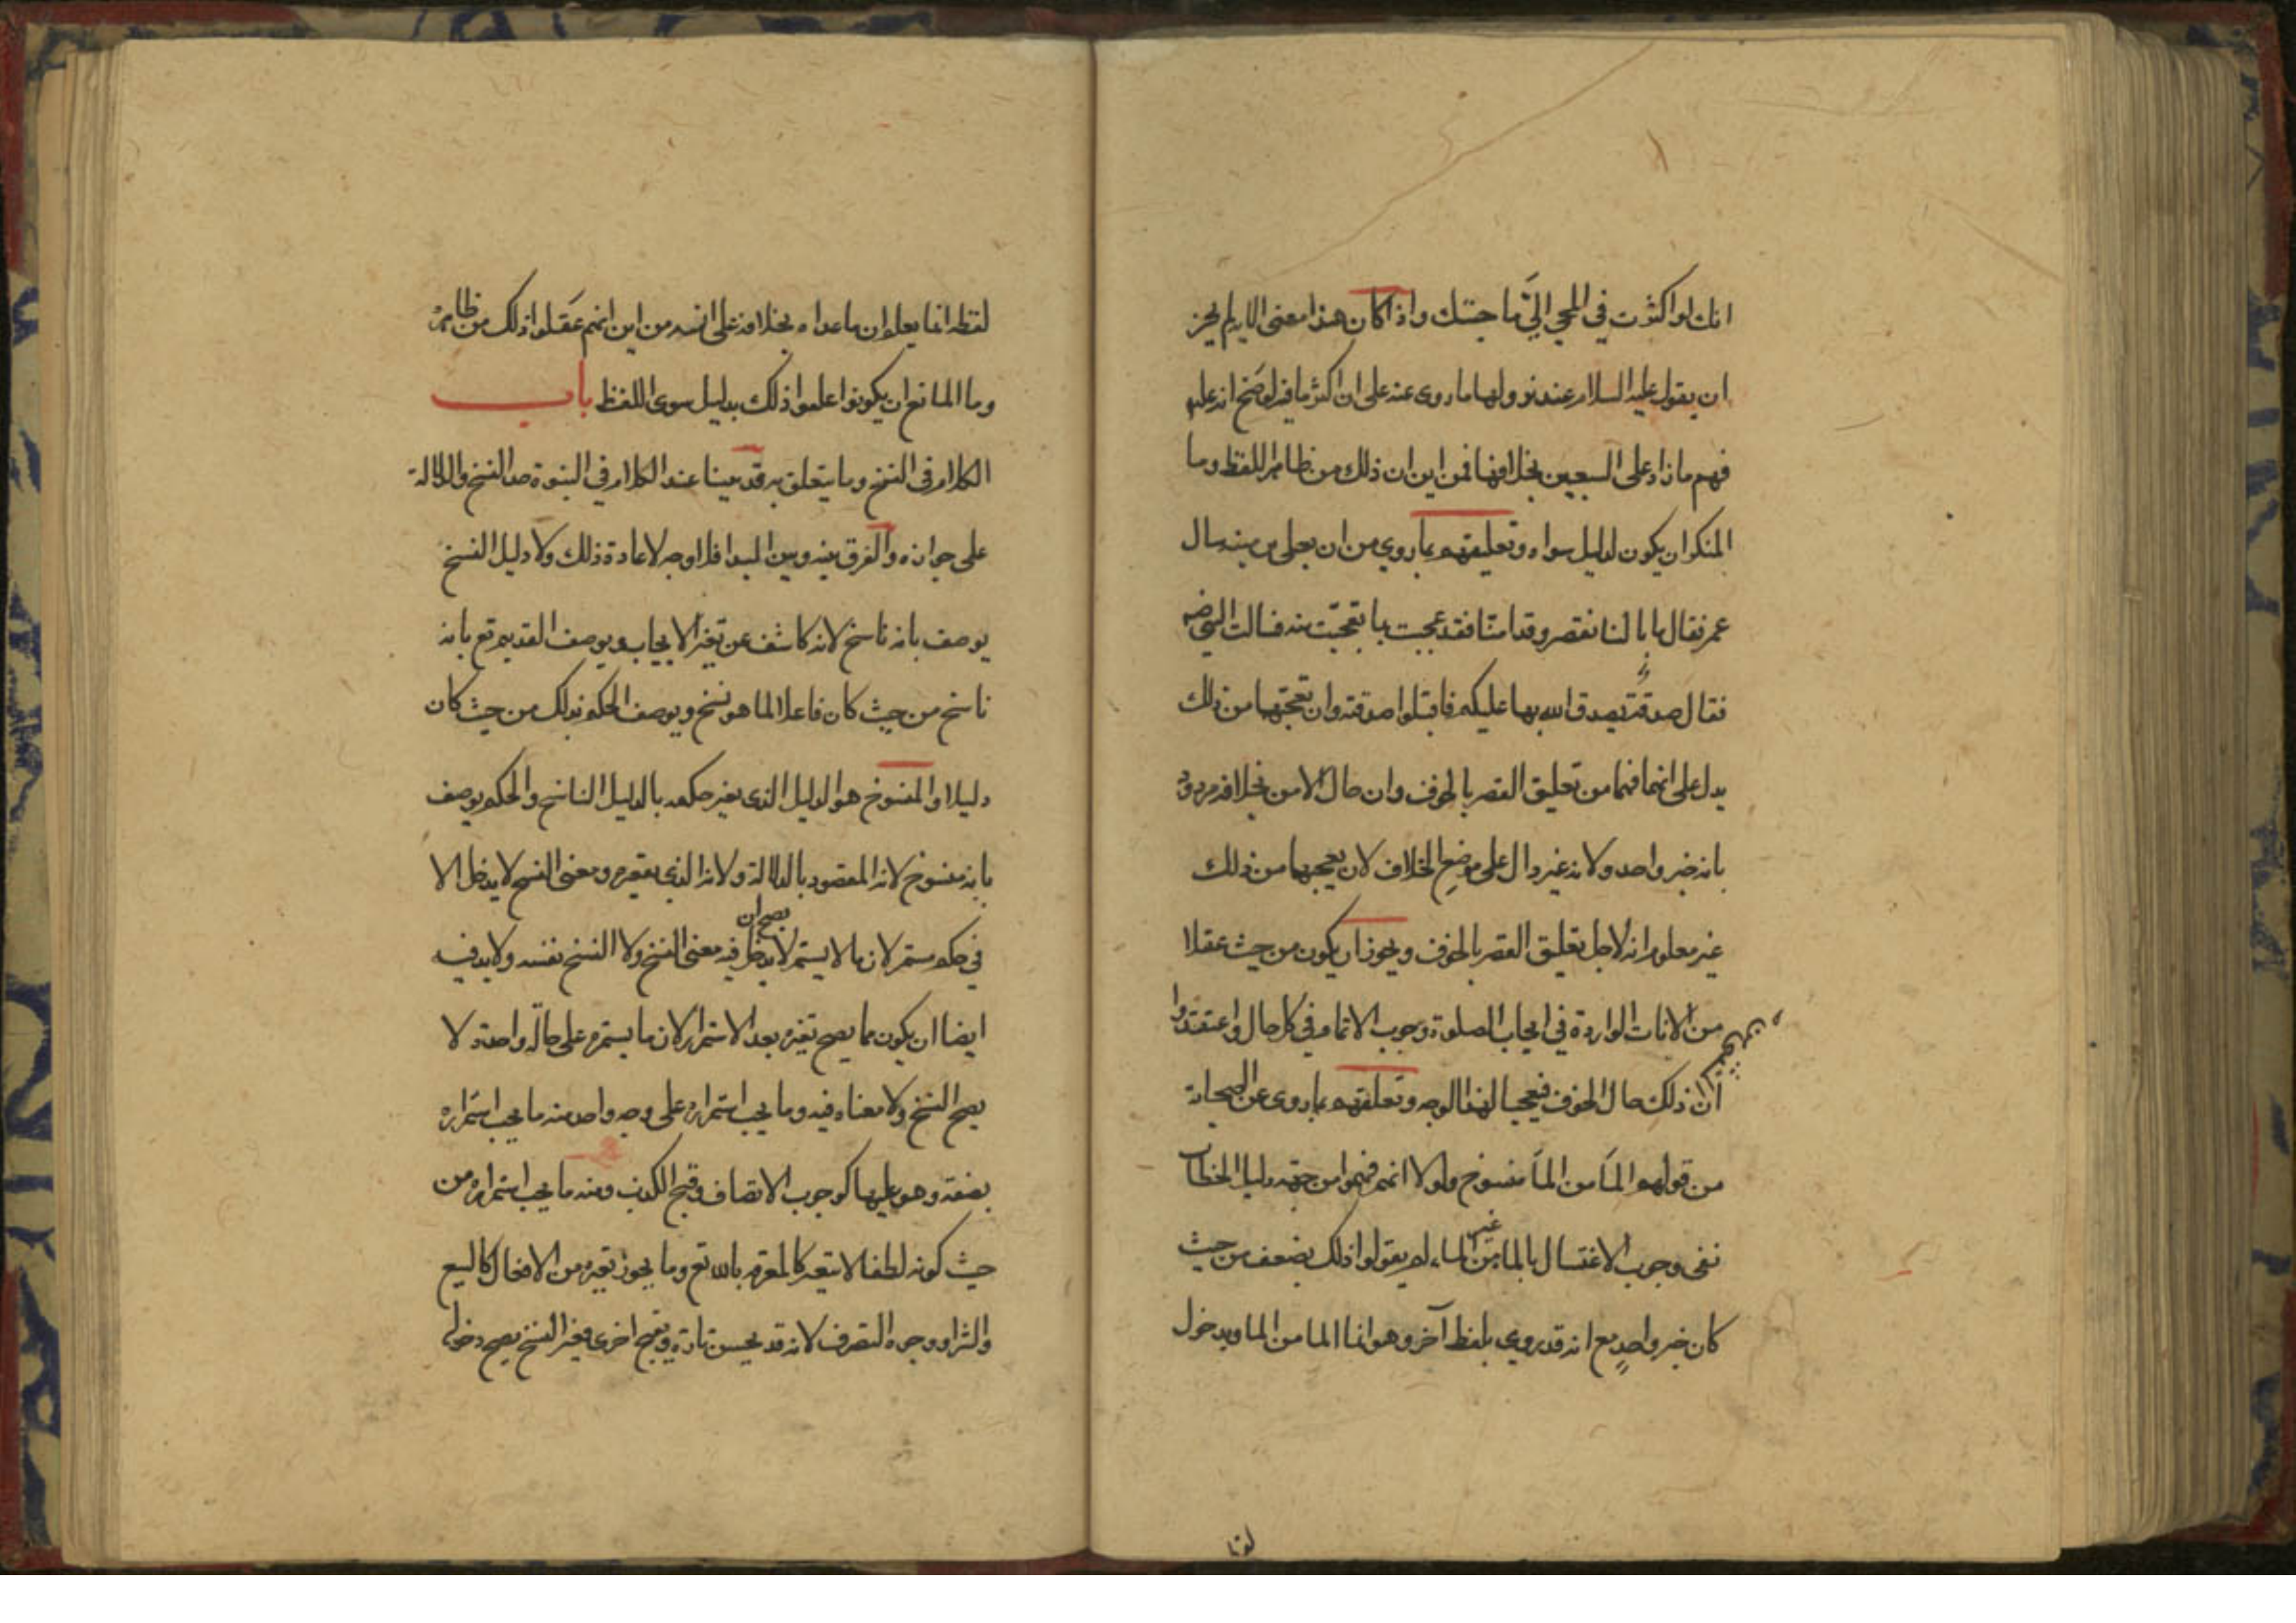 انك لو اكثرت في المجي اليّ ما جئتك واذا كان هذا معنى الاية لم يجز
ان يقول عليه السلام عند نزولها ما روى عنه على ان اكثر ما فيه لو صح انه عليه
فهم ما زاد على السبعين بخلافها فمن اين ان ذلك من ظاهر اللفظ وما
المنكر ان يكون لدليل سواه وتعليقهم بما روي من ان يعلى بن منيه سال
عمر فقال ما بالنا نقصر وقد امنّا فقد عجبت بما تعجّبت منه فسالت النبي
فقال صدقة تصدق الله بها عليكم فاقبلوا صدقته وان تعجّبهما من ذلك
يدل على انهما فهما من تعليق القصر بالخوف وان حال الامن بخلافه مردود
بانه خبر واحد ولانه غير دال على موضع الخلاف لان تعجبهما من ذلك
غير معلوم انه لاجل تعليق القصر بالخوف ويجوز ان يكون من حيث عقلا
من الايات الواردة في ايجاب الصلوة وجوب الاتمام في كل حال واعتقدوا
ان ذلك حال الخوف فتعجبا لهذا الوجه وتعلقهم بما روى عن الصحابة
من قولهم الماء من الماء منسوخ ولولا انهم فهموا من جهة دليل الخطاب
نفى وجوب الاغتسال بالماء من غير الماء لم يقولوا ذلك يضعف من حيث
كان خبر واحدٍ مع انه قد روي بلفظ آخر وهو انما الما من الما وبدخول
لفظ
لفظة انما يعلم ان ما عداه بخلافه على انه من اين انهم عقلوا ذلك من ظاهره
وما المانع ان يكونوا علموا ذلك بدليل سوى اللفظ باب
الكلام في النسخ وما يتعلق به قد بينا عند الكلام في النبوة حد النسخ والدلالة
على جوازه والفرق بينه وبين البدا فلا وجه لاعادة ذلك ولا دليل النسخ
يوصف بانه ناسخ لانه كاشف عن تغير الايجاب ويوصف القديم تع بانه
ناسخ من حيث كان فاعلا لما هو نسخ ويوصف الحكم بذلك من حيث كان
دليلا والمنسوخ هو الدليل الذى تغير حكمه بالدليل الناسخ والحكم يوصف
بانه منسوخ لانه المقصود بالدلالة ولانه الذى يتغير ومعنى النسخ لا يدخل الا
في حكم مستمر لان ما لا يستمر لا يصح ان يدخل فيه معنى النسخ ولا النسخ نفسه ولا بد فيه
ايضا ان يكون مما يصح تغيره بعد الاستمرار لان ما يستمر على حالة واحدة لا
يصح النسخ ولا معناه فيه وما يجب استمراره على وجه واحد منه ما يجب استمراره
بصفة وهو عليها كوجوب الانصاف وقبح الكذب ومنه ما يجب استمراره من
حيث كونه لطفا لا يتغير كالمعرفة بالله تع وما يجوز تغيره من الافعال كالبيع
والشراء ووجوه التصرف لانه قد يحسن تارة ويقبح اخرى فمعنى النسخ يصح دخوله